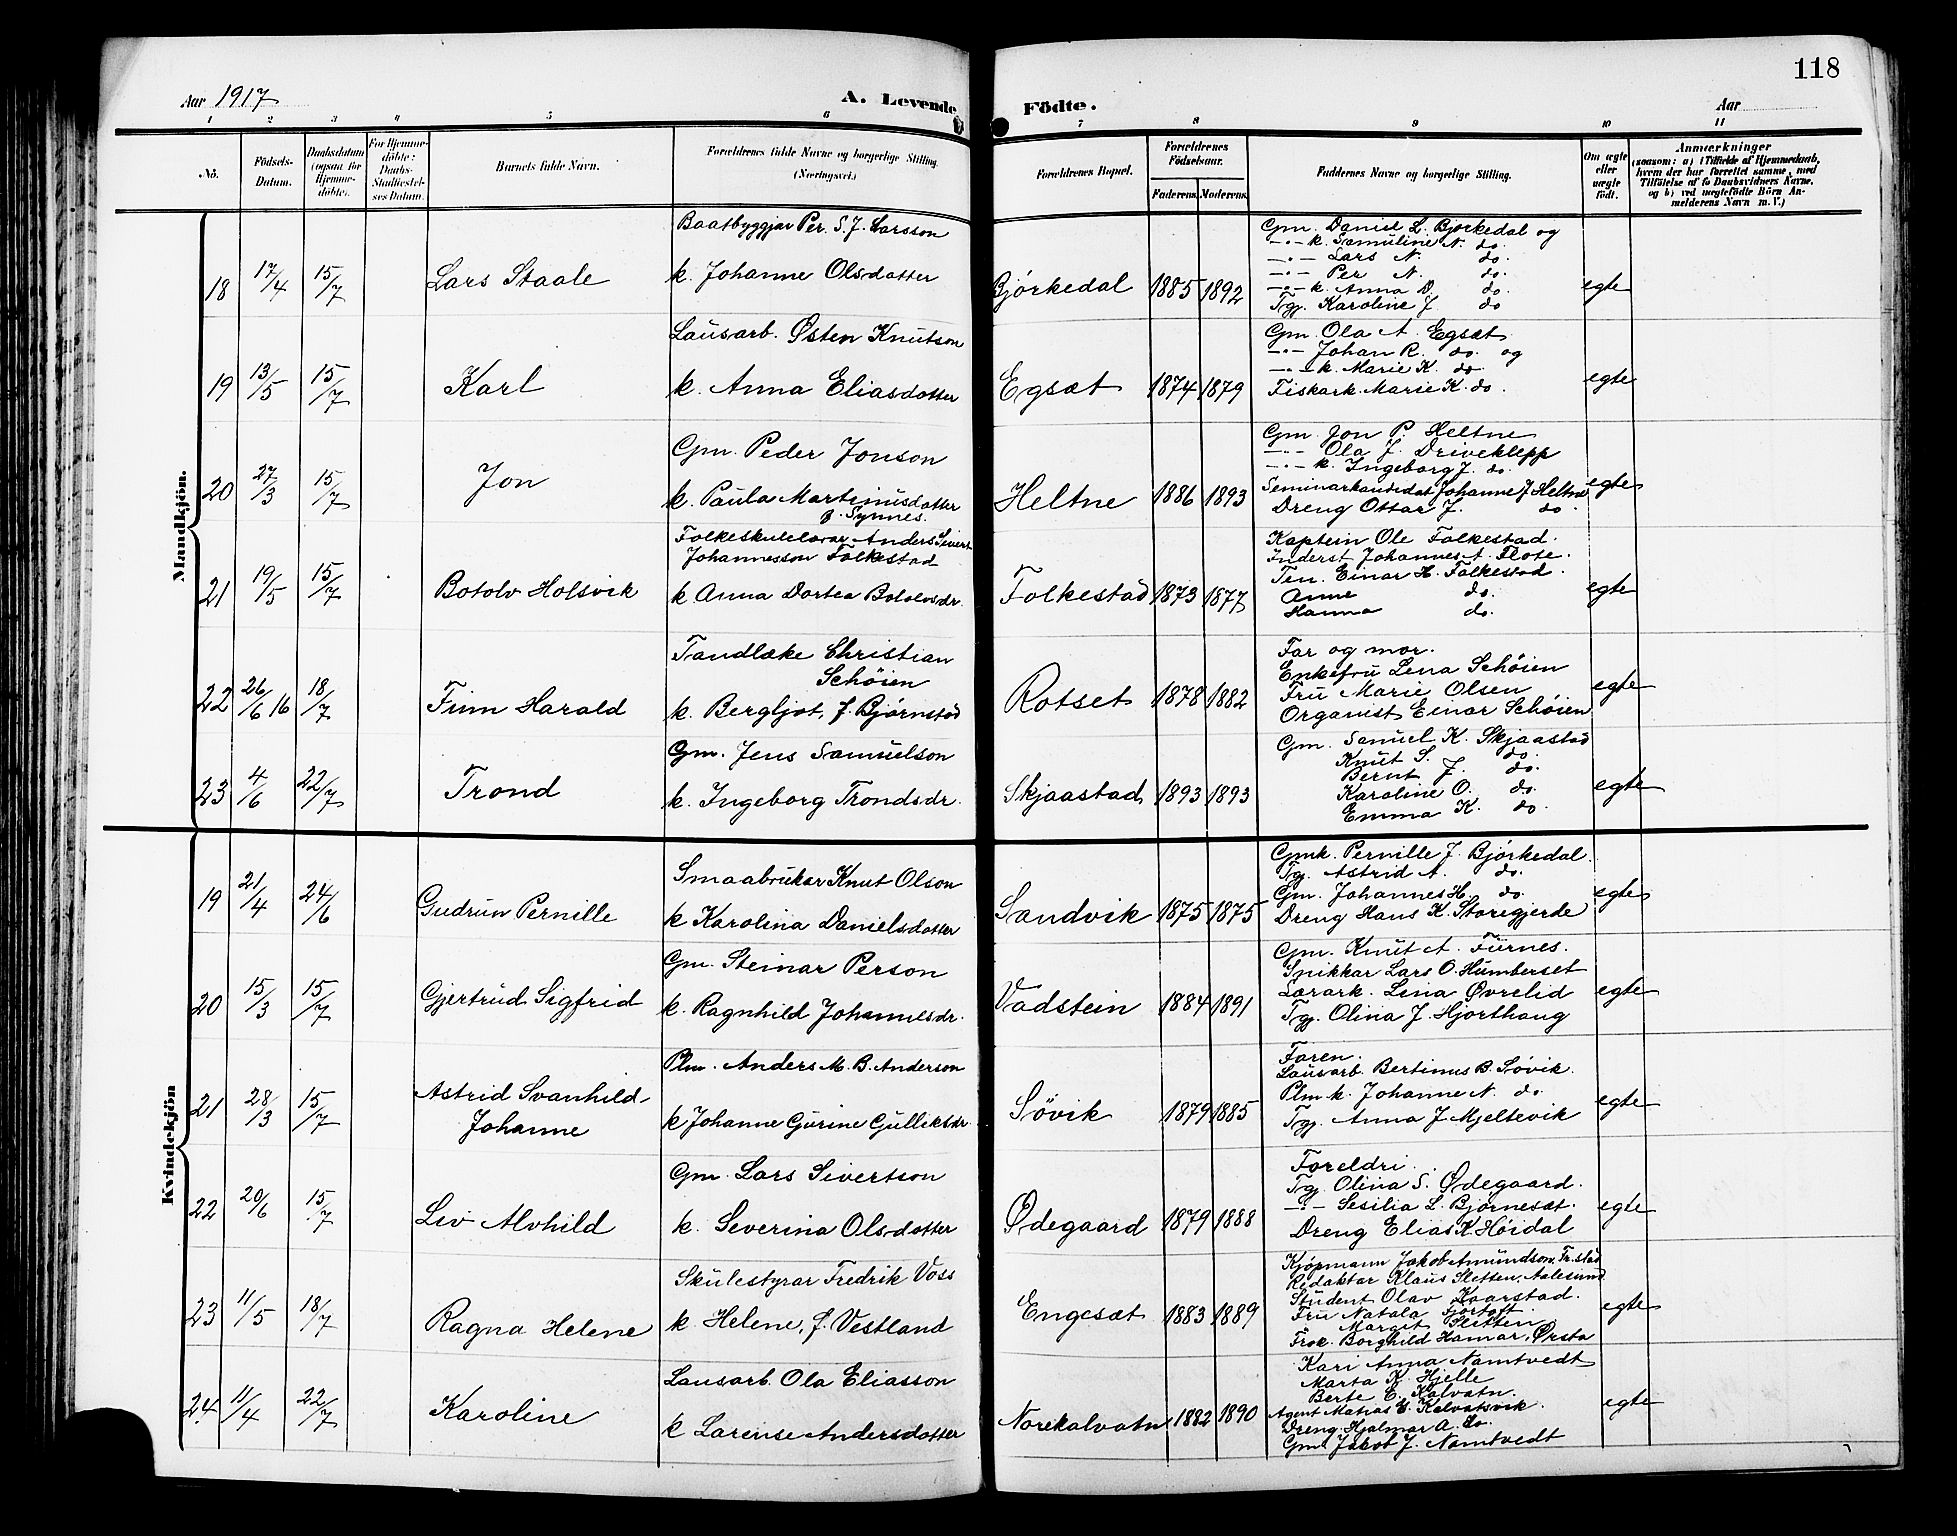 118
Aar 1917
A. Levende Födte.
Aar
1 2 3 4 5 6 7 8 9 10 11
No.
Födsels-Datum.
Daabsdatum (ogsaa for Hjemme-döbte).
For Hjemme-döbte: Daabs-Stadfæstel-ses Datum.
Barnets fulde Navn.
Forældrenes fulde Navne og borgerlige Stilling. (Næringsvei.)
Forældrenes Bopæl.
Forældrenes Födselsaar.
Faderens. Moderens.
Faddernes Navne og borgerlige Stilling.
Om ægte eller uægte födt.
Anmærkninger
(saasom: a) i Tilfælde af Hjemmedaab, hvem der har forrettet samme, med Tilföielse af to Daabsvidners Navne, og b) ved uægtefödte Börn An-melderens Navn m. V.)
Mandkjön.
18 17/4 15/7 Lars Staale
Baatbyggjar Per. S. J. Larsson
k. Johanne Olsdotter
Bjórkedal 1885 1892
Gm. Daniel L. Bjorkedal og
—"— k. Samuline N. do.
—"— Lars N. do.
—"— Per N. do.
—"— k. Anna D. do.
Tgj. Karoline J do
egte
19 13/5 15/7 Karl
Lausarb. Østen Knutson
k. Anna Eliasdotter
Egsæt 1874 1879
Gm. Ola A. Egsæt
—"— Johan R. do. og
—"— k. Marie K. do
Fiskark. Marie K. do.
egte
20 27/3 15/7 Jon
Gm. Peder Jonson
k. Paula Martinusdotter
f. Synnes.
Heltne 1886 1893
Gm. Jon P. Heltne
—"— Ola J. Driveklepp
—"— k. Ingeborg J. do.
Seminarkandidat Johanne J Heltne
Dreng Ottar J. do.
egte
21 19/5 15/7 Botolv Holsvik
Folkeskulelærar Anders Sivert
Johannesson Folkestad
k. Anna Dortea Botolvsdr.
Folkestad 1873 1877
Kaptein Ole Folkestad.
Inderst Johannes A. Flote.
Ten. Einar H. Folkestad.
Anne do.
Hanna do.
egte
22 26/6 16 18/7 Finn Harald
Tandlæke Christian
Schøien
k. Bergljot, f. Bjørnstad
Rotset 1878 1882
Far og mor.
Enkefru Lena Schöien
Fru Marie Olsen
Organist Einar Schöien
egte
23 4/6 22/7 Trond
Gm. Jens Samuelson
k. Ingeborg Trondsdr.
Skjaastad 1893 1893
Gm. Samuel K. Skjaastad
Knut S. do.
Bernt J. do.
Karoline O. do.
Emma K. do.
egte
Kvindekjön
19 21/4 24/6 Gudrun Pernille
Smaabrukar Knut Olson
k Karolina Danielsdotter
Sandvik 1875 1875
Gmk. Pernille J. Bjórkedal.
Tg. Astrid A. do.
Gm. Johannes H. do
Dreng Hans K. Storegjerde
egte
20 15/3 15/7 Gjertrud Sigfrid
Gm. Steinar Person
k. Ragnhild Johannesdr.
Vadstein 1884 1891
Gm. Knut A. Furnes.
Snikkar Lars O. Humberset
Lærark. Lina Øvrelid
Tgj. Olina J. Hjorthaug
egte
21 28/3 15/7 Astrid Svanhild-
Johanne
Plm. Anders M. B. Anderson
k Johanne Gurine Gulliksdr.
Sövik 1879 1885
Faren.
Lausarb. Bertinus B. Sövik.
Plm k. Johanne N. do
Tgj. Anna J Mjeltevik
egte
22 20/6 15/7 Liv Alvhild
Gm. Lars Sivertson
k. Severina Olsdotter
Ødegaard 1879 1888
Foreldri.
Tg. Olina S. Ødegaard.
—"— Sesilia L. Bjørnesæt.
Dreng Elias K. Höidal
egte
23 11/5 18/7 Ragna Helene
Skulestyrar Fredrik Voss
k. Helene, f. Vestland
Engesæt 1883 1889
Kjøpmann Jakob Amundson, Fr.stad
Redaktør Klaus Sletten, Aalesund
Student Olav Kaarstad.
Fru Natala Fjörtoft
Margit Sletten.
Frøk. Borghild Hamar, Ørsta
egte
24 11/4 22/7 Karoline
Lausarb. Ola Eliasson
k Larense Andersdotter
Norekalvatn 1882 1890
Kari Anna Namtvedt
Marta K. Hjelle
Berte E. Kalvatn.
Agent Matias E. Kalvatsvik.
Dreng. Hjalmar A. do.
Gm. Jakob J. Namtvedt
egte